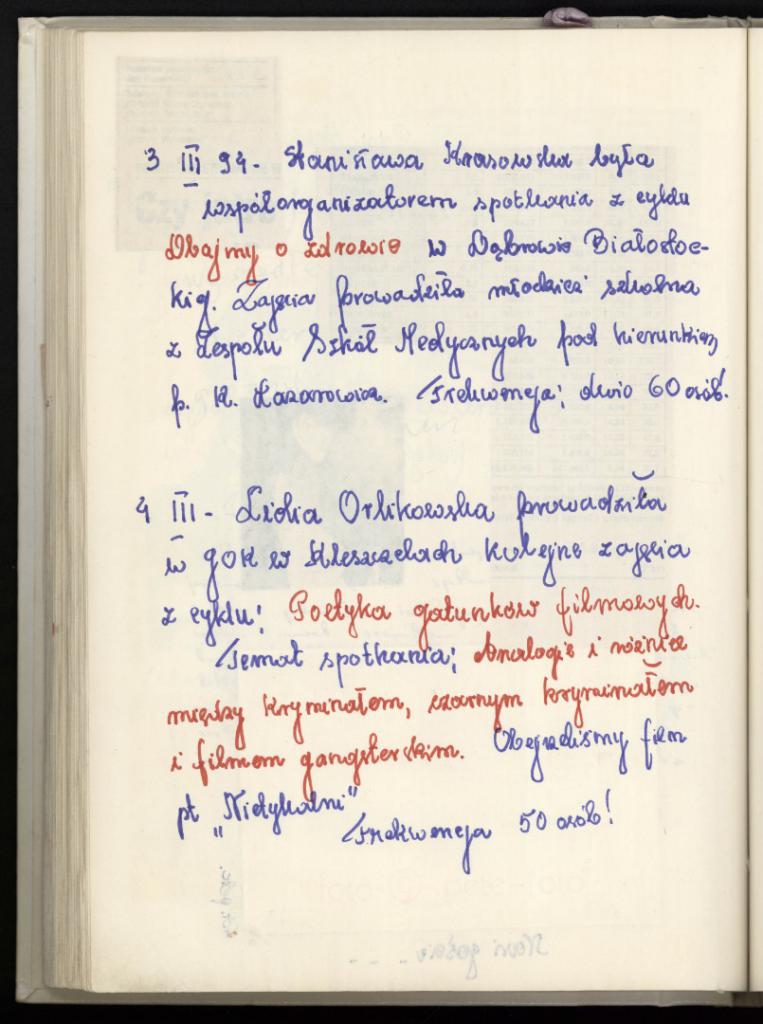 3 III 94 - Stanisława Krasowska była
współorganizatorem spotkania z cyklu
Dbajmy o zdrowie w Dąbrowie Białostoc-
kiej. Zajęcia prowadziła młodzież szkolna
z Zespołu Szkół Medycznych pod kierunkiem
p. K. Łazarowicz. Frekwencja: około 60 osób.
4 III - Lidia Orlikowska prowadziła
w GOK w Kleszczelach kolejne zajęcia
z cyklu: Poetyka gatunków filmowych.
Temat spotkania: Analogie i różnice
między kryminałem, czarnym kryminałem
i filmem gangsterskim. Obejrzeliśmy film
pt „Nietykalni"
Frekwencja 50 osób!